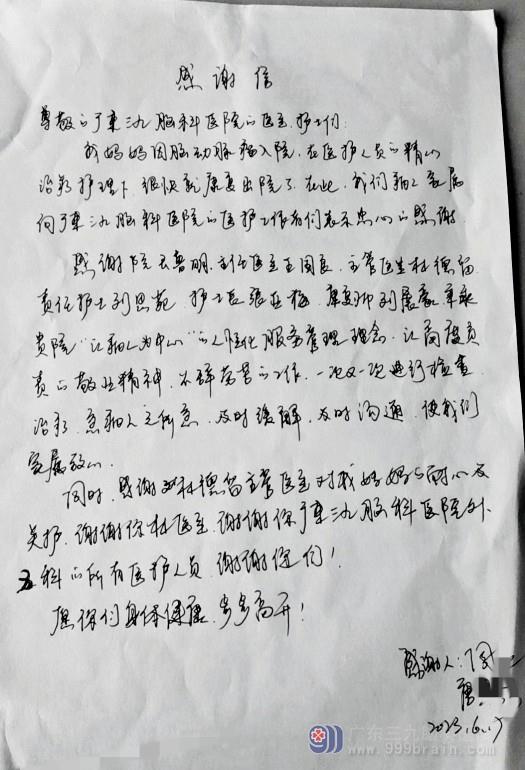 感谢信
尊敬的广东三九脑科医院的医生、护士们:
我妈妈因脑动脉瘤入院,在医护人员的精心
治疗护理下,很快就康复出院了。在此,我们病人家属
向广东三九脑科医院的医护工作者们表示衷心的感谢。
感谢院长鲁明,主任医生王国良,主管医生杜德留
责任护士刘思苑,护士长张亚梅,康复师刘展豪,秉承
贵院"以病人为中心"的人性化服务管理理念,以高度负
责的敬业精神,不辞劳苦的工作,一次又一次进行检查
治疗,急病人之所急,及时缓解,及时沟通,使我们
家属放心。
同时,感谢杜德留主管医生对我妈妈的耐心及
关护,谢谢你杜医生,谢谢你广东三九脑科医院外
五科的所有医护人员,谢谢您们!
愿你们身体健康,步步高升!
感谢人:周
2023.6.17
广东三九脑科医院
www.999brain.com